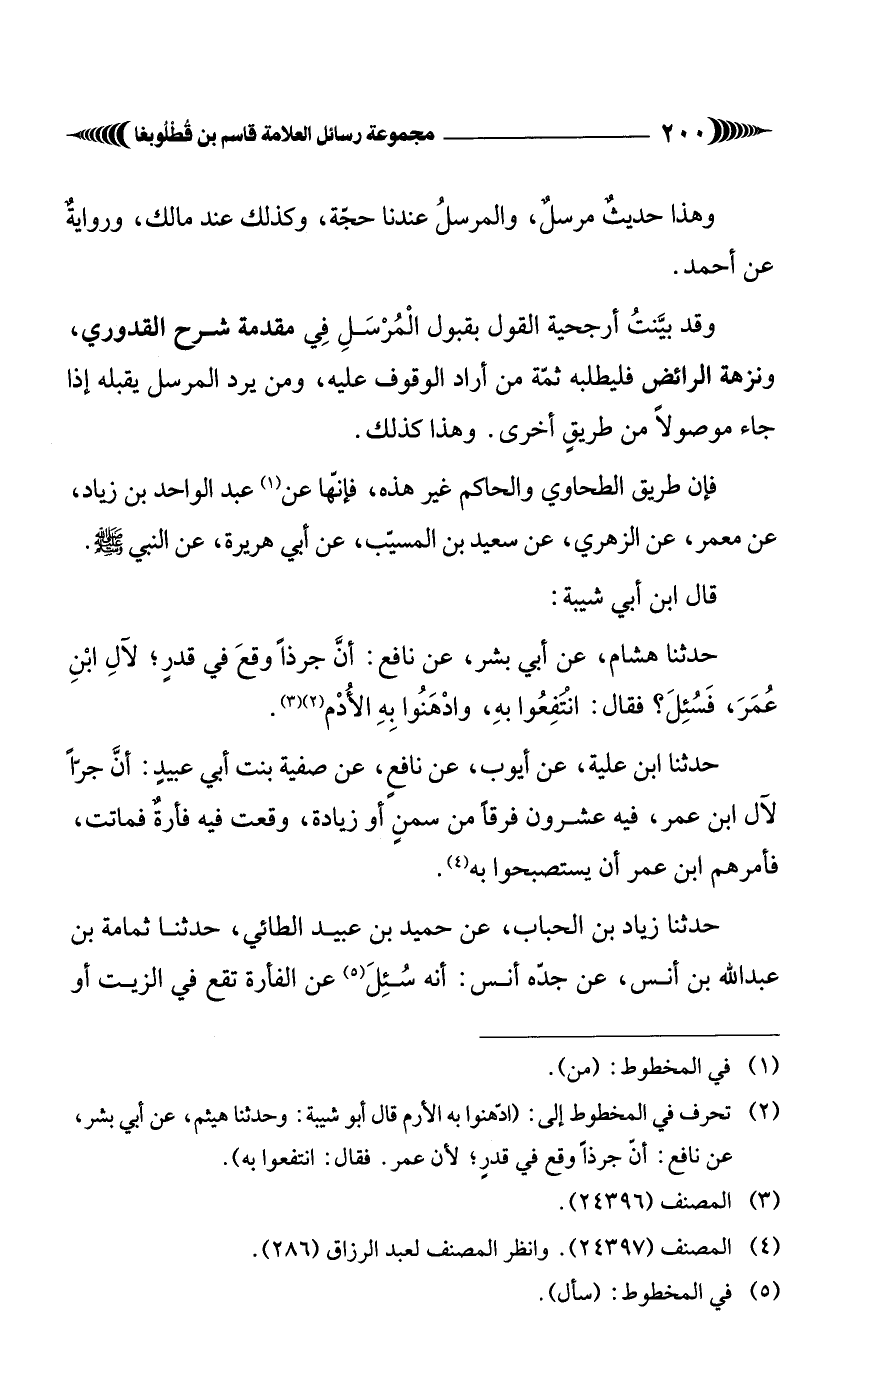 ٢٠٠ مجموعة رسائل العلامة قاسم بن قُطْلُوبغا
وهذا حديثٌ مرسلٌ، والمرسلُ عندنا حجّة، وكذلك عند مالك، وروايةٌ
عن أحمد.
وقد بيَّنتُ أرجحية القول بقبول الْمُرْسَلِ فِي مقدمة شرح القدوري،
ونزهة الرائض فليطلبه ثمّة من أراد الوقوف عليه، ومن يرد المرسل يقبله إذا
جاء موصولاً من طريقٍ أخرى. وهذا كذلك.
فإن طريق الطحاوي والحاكم غير هذه، فإنّها عن(١) عبد الواحد بن زياد،
عن معمر، عن الزهري، عن سعيد بن المسيّب، عن أبي هريرة، عن النبي ﷺ.
قال ابن أبي شيبة:
حدثنا هشام، عن أبي بشر، عن نافع: أنَّ جرذاً وقعَ في قدرٍ؛ لآلِ ابْنِ
عُمَرَ، فَسُئِلَ؟ فقال: انْتُفِعُوا بهِ، وادْهَنُوا بِهِ الأُدْم(٢)(٣).
حدثنا ابن علية، عن أيوب، عن نافعٍ، عن صفية بنت أبي عبيدٍ: أنَّ جرّاً
لآل ابن عمر، فيه عشرون فرقاً من سمنٍ أو زيادة، وقعت فيه فأرةٌ فماتت،
فأمرهم ابن عمر أن يستصبحوا به(٤).
حدثنا زياد بن الحباب، عن حميد بن عبيد الطائي، حدثنا ثمامة بن
عبدالله بن أنس، عن جدّه أنس: أنه سُئِلَ(٥) عن الفأرة تقع في الزيت أو
(١) في المخطوط: (من).
(٢) تحرف في المخطوط إلى: (ادّهنوا به الأرم قال أبو شيبة: وحدثنا هيثم، عن أبي بشر،
عن نافع: أنّ جرذاً وقع في قدرٍ؛ لأن عمر. فقال: انتفعوا به).
(٣) المصنف (٢٤٣٩٦).
(٤) المصنف (٢٤٣٩٧). وانظر المصنف لعبد الرزاق (٢٨٦).
(٥) في المخطوط: (سأل).